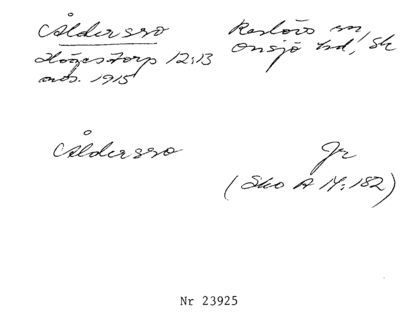 Åldersro
Högestorp 12:13
avs. 1915
Reslövs sn,
Onsjö hd, Sk
Åldersro
Jr
(Sko A 14:182)
Nr 23925